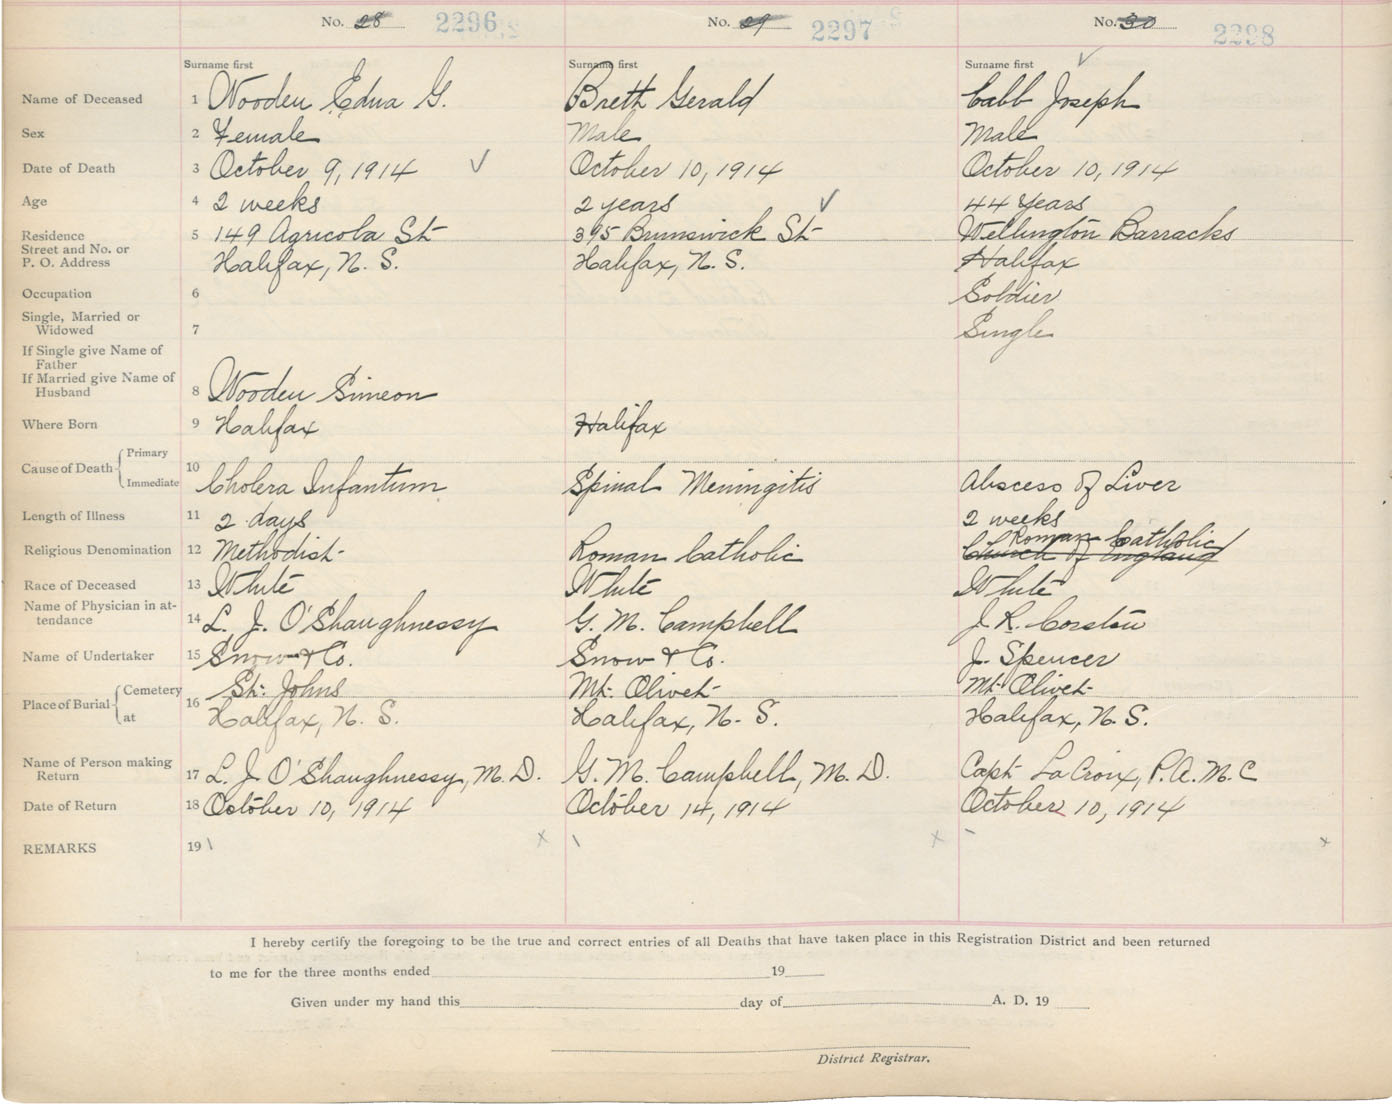 No. 28 2296 No. 29 2297 No. 30 2298
Surname first Surname first Surname first
Name of Deceased 1 Wooden Edna G. Brett Gerald Cabb Joseph
Sex 2 Female Male Male
Date of Death 3 October 9, 1914 October 10, 1914 October 10, 1914
Age 4 2 weeks 2 years 44 Years
Residence 5 149 Agricola St 395 Brunswick St Wellington Barracks
Street and No. or
P. O. Address Halifax, N. S. Halifax, N. S. Halifax
Occupation 6 Soldier
Single, Married or
Widowed 7 Single
If Single give Name of
Father
If Married give Name of
Husband 8 Wooden Simeon
Where Born 9 Halifax Halifax
Cause of Death Primary
Immediate 10 Cholera Infantum Spinal Meningitis Abscess of Liver
Length of Illness 11 2 days 2 weeks
Religious Denomination 12 Methodist Roman Catholic Roman Catholic
Church of England
Race of Deceased 13 White White White
Name of Physician in at-
tendance 14 L. J. O'Shaughnessy G. M. Campbell J. R. Corston
Name of Undertaker 15 Snow & Co. Snow & Co. J. Spencer
Place of Burial Cemetery 16 St. Johns Mt. Olivet Mt. Olivet
at Halifax, N. S. Halifax, N. S. Halifax, N. S.
Name of Person making
Return 17 L. J. O'Shaughnessy, M. D. G. M. Campbell, M. D. Capt LaCroix, P. A. M. C
Date of Return 18 October 10, 1914 October 14, 1914 October 10, 1914
REMARKS 19
I hereby certify the foregoing to be the true and correct entries of all Deaths that have taken place in this Registration District and been returned
to me for the three months ended 19
Given under my hand this day of A. D. 19
District Registrar.